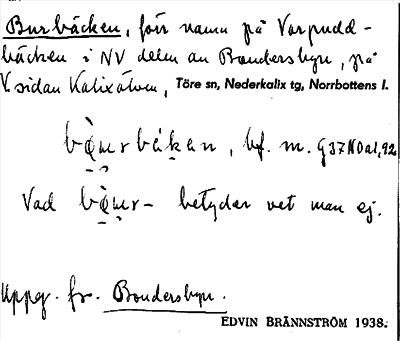 Burbäcken, förr namn på Varpudd-
bäcken i NV delen av Bondersbyn, på
V. sidan Kalixälven, Töre sn, Nederkalix tg, Norrbottens l.
bf. m. G37NOa1,92
Vad betyder vet man ej.
Uppg. fr. Bondersbyn.
EDVIN BRÄNNSTRÖM 1938.